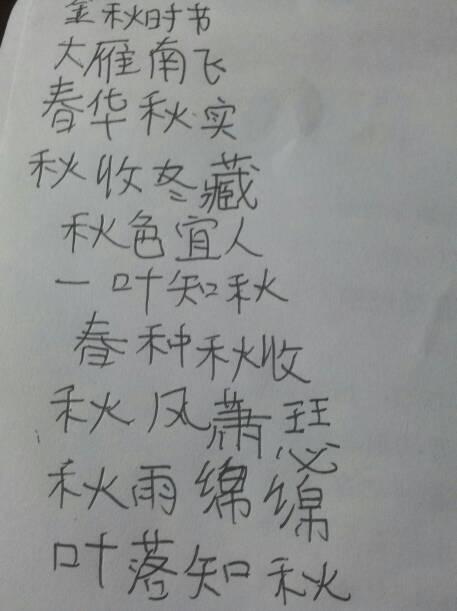 金秋时节
大雁南飞
春华秋实
秋收冬藏
秋色宜人
一叶知秋
春种秋收
秋风萧瑟
秋雨绵绵
叶落知秋